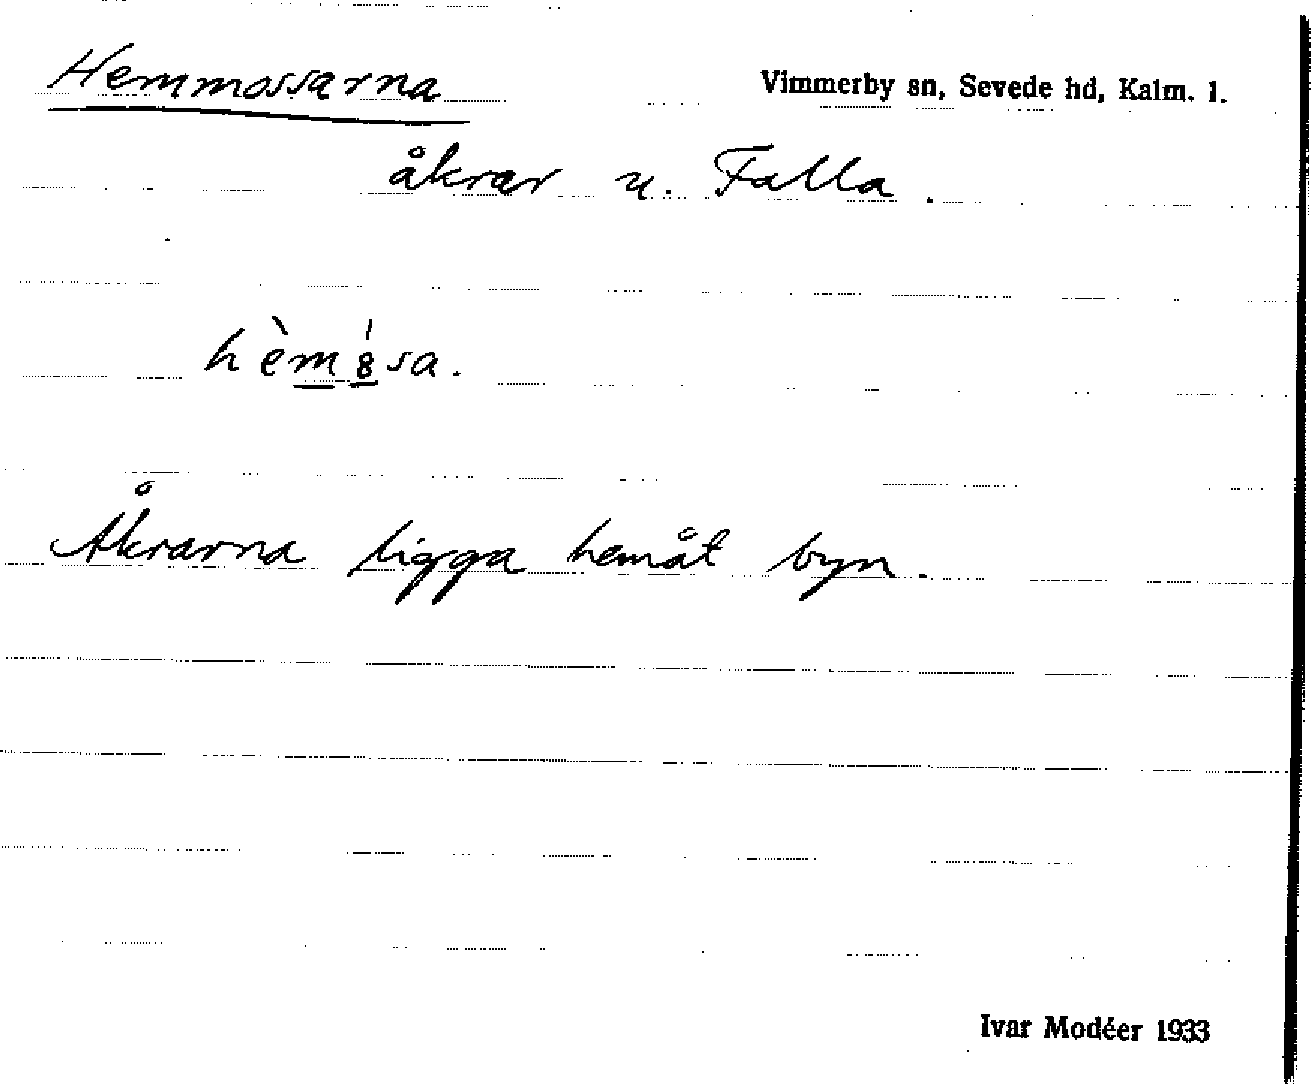 Hemmossarna
Vimmerby sn, Sevede hd, Kalm. l.
åkrar u. Falla.
hèm8́sa.
Åkrarna ligga hemåt byn.
Ivar Modéer 1933